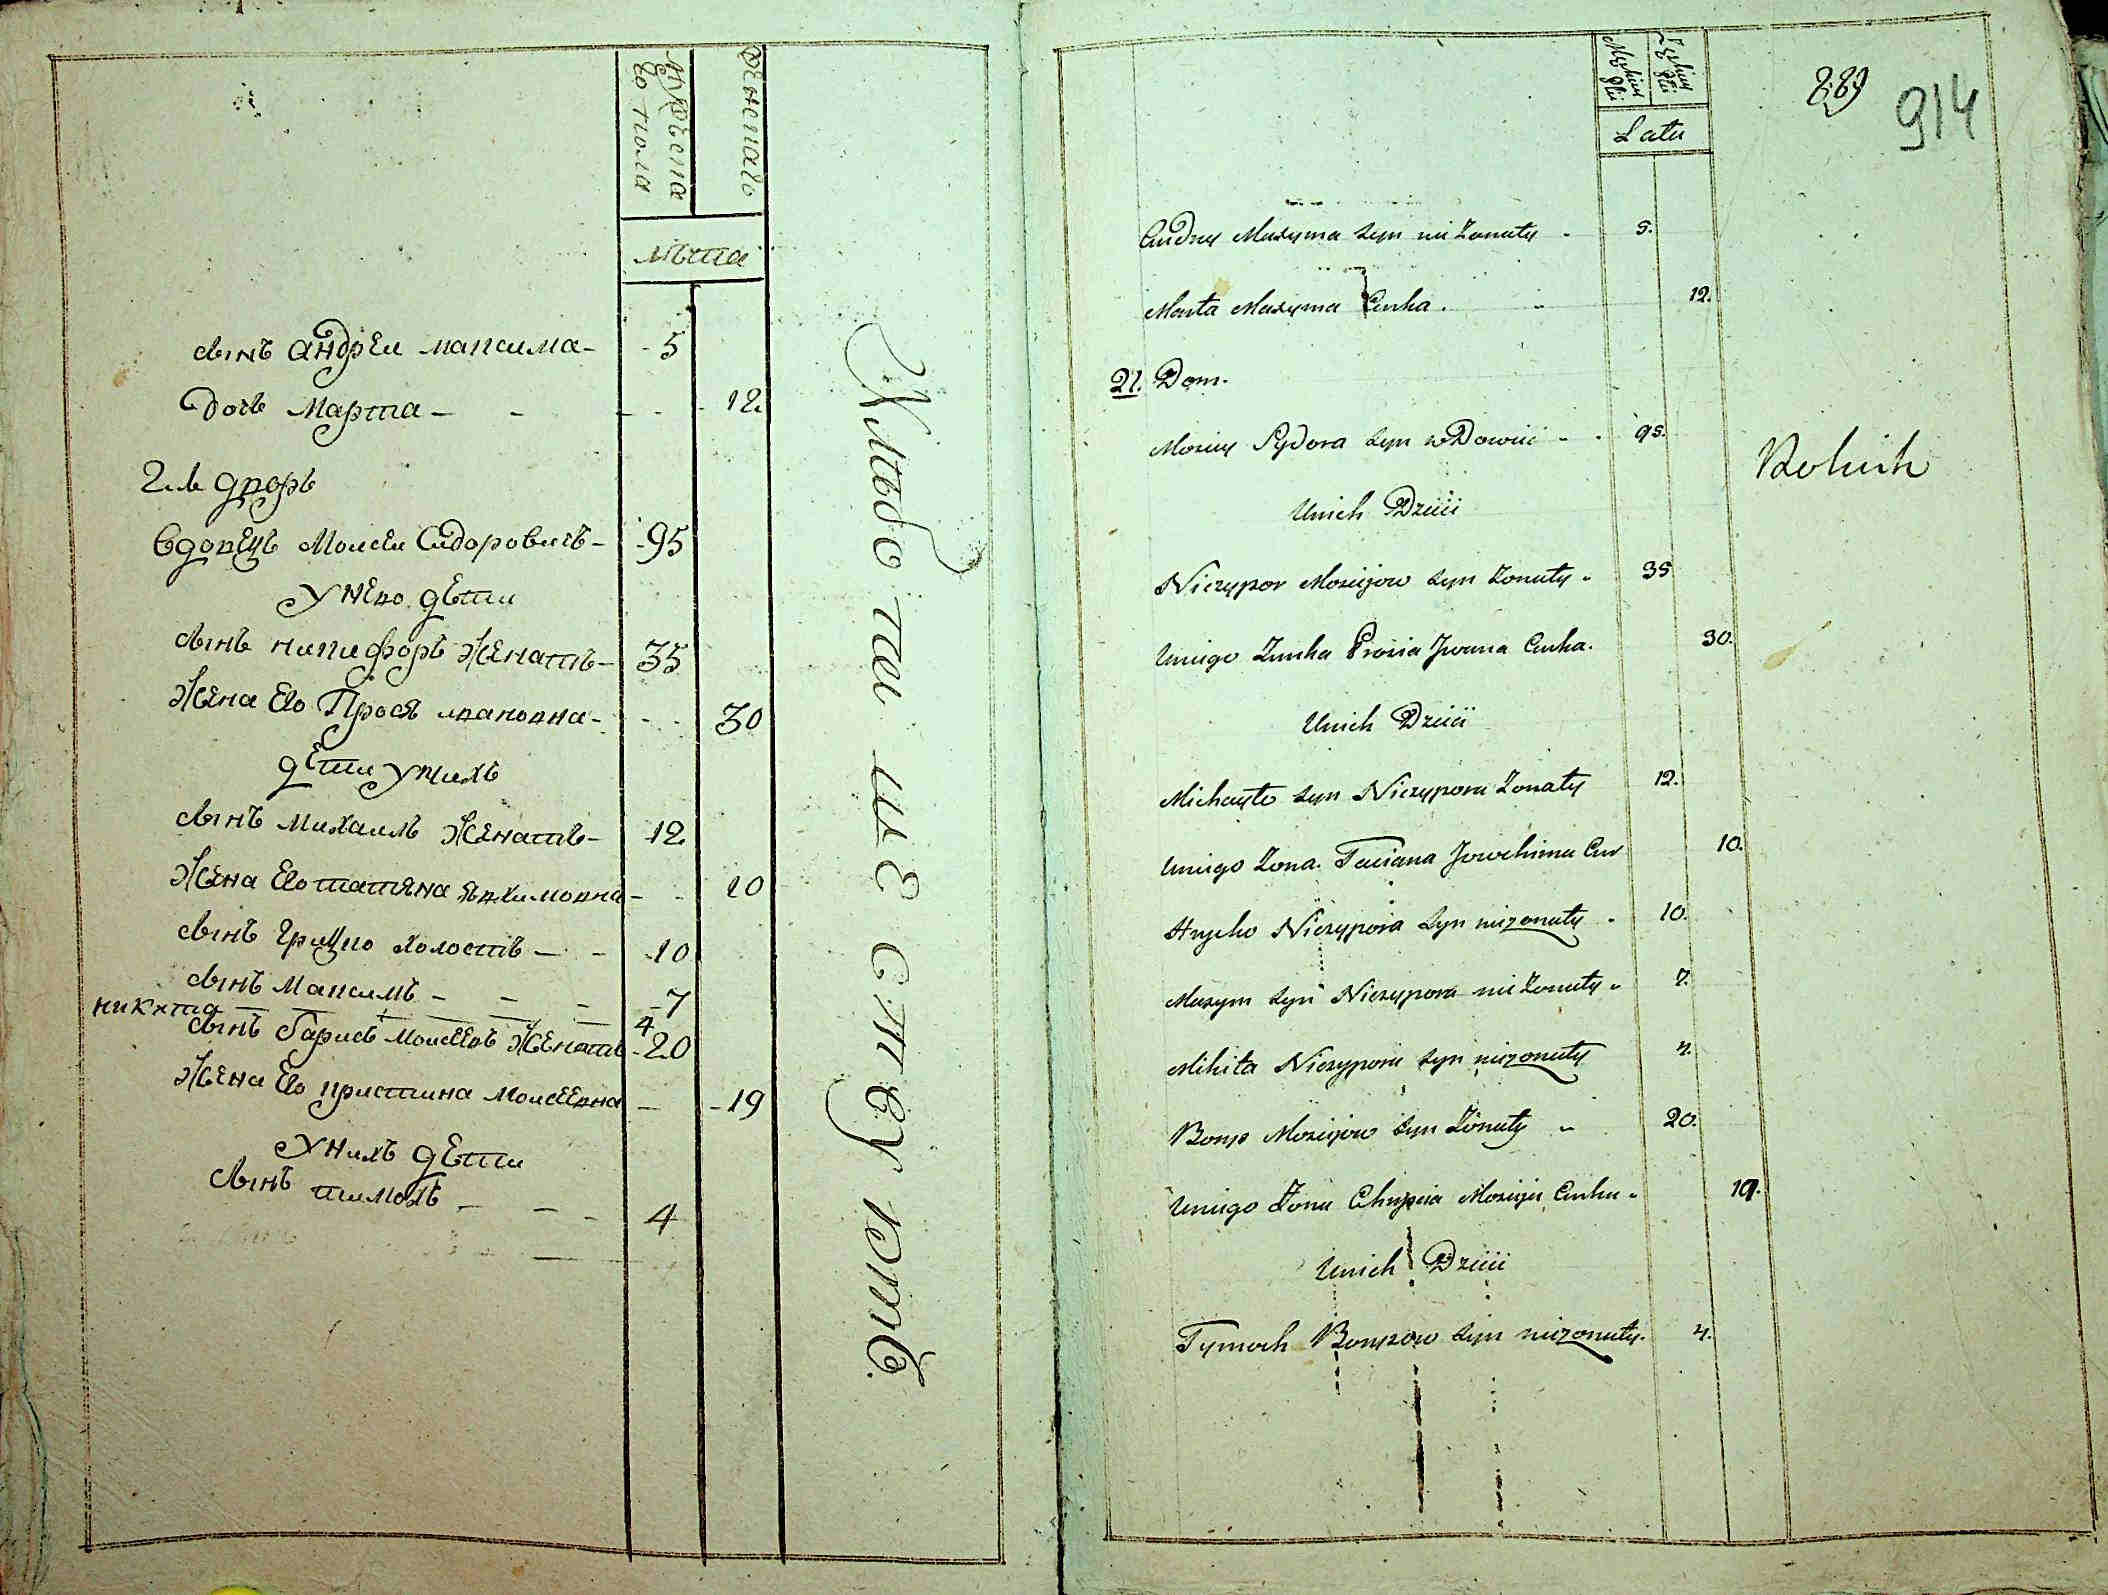 мужеска
го пола
женскаго
лѣта
сынъ андреи максима - 5
дочь марта - - - 12.
21 дворъ
вдовецъ моисеи сидоровичъ - 95
унего дети
сынъ никифоръ женатъ - 35
жена его Прося ивановна - - - 30
дети унихъ
сынъ михаилъ женатъ - 12
жена его татяна явхимовна - - 10
сынъ грицко холостъ - - 10
сынъ максимъ - - - 7
никита - - - - 4
сынъ барисъ моисеевъ женатъ - 20
жена его христина моисеевна - - 19
унихъ дети
сынъ тимохъ - - - 4
Хлѣбопашествуютъ.
Męskiey płci
Żeńskiey płci
Latu
889
914
Andrey Maxyma syn nieżonaty - 5.
Marta Maxyma Curka. - 12.
21. Dom.
Moziey Sydora syn wdowiec - - 95.
Boluich
Unich Dzieci
Niczypor Moziejow syn żonaty - 35
Uniego Żonka Prosia Jwana Curka. 30.
Unich Dzieci
Michayło syn Niczypora żonaty 12.
Uniego żona. Taciana Jowchima Cur 10.
Hrycko Niczypora syn nieżonaty - 10.
Maxym syn Niczypora nieżonaty - 7.
Mikita Niczypora syn nieżonaty 4.
Borys Moziejow syn Żonaty - 20.
Uniego Żona Chrystia Mozieja Curka - 19.
Unich Dzieci
Tymoch Borysow syn nieżonaty. 4.